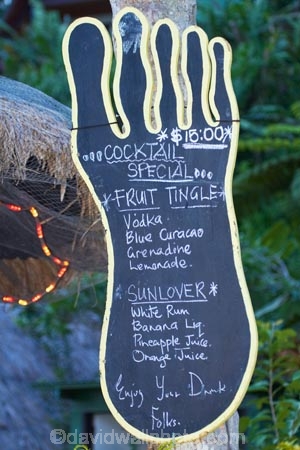 *$15:00*
...COCKTAIL
SPECIAL...
*FRUIT TINGLE*
Vodka
Blue Curacao
Grenadine
Lemonade.
*SUNLOVER*
White Rum
Banana Liq.
Pineapple Juice.
Orange Juice.
Enjoy Your Drink
Folks.
©davidwallphoto.com